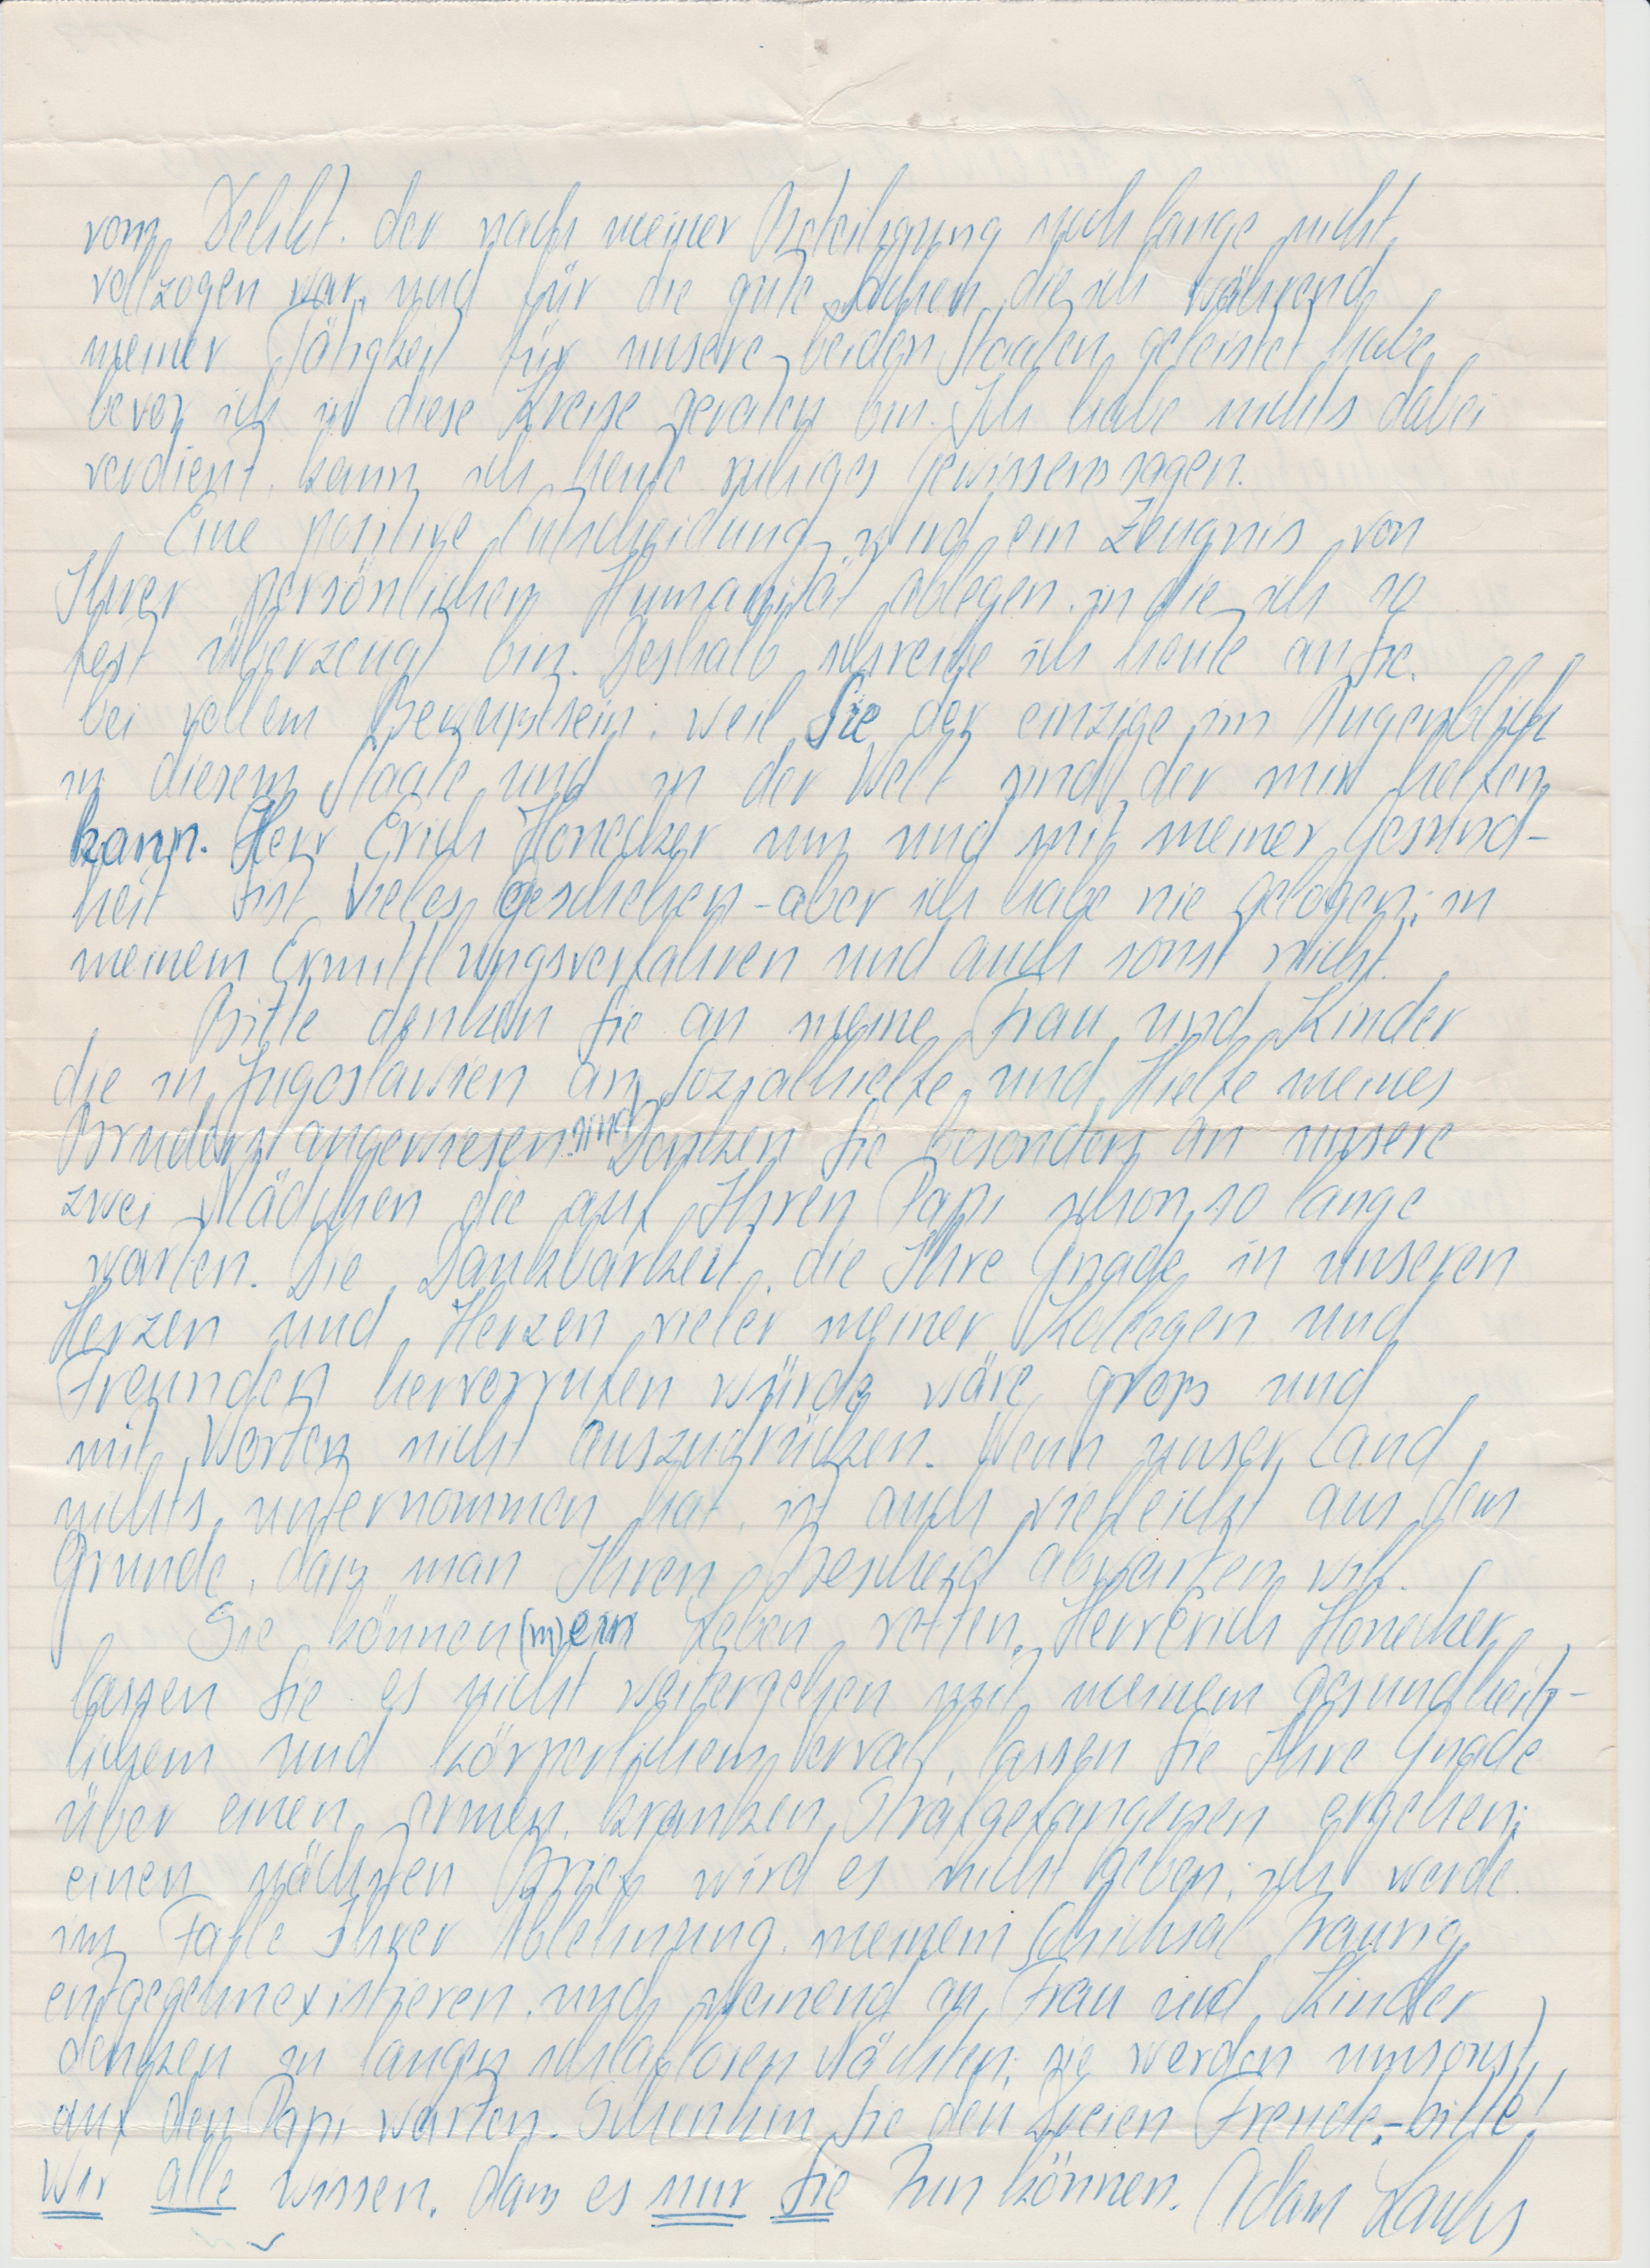 vom Delikt, der nach meiner Beteiligung noch lange nicht
vollzogen war, und für die gute Sachen, die ich während
meiner Tätigkeit für unsere beiden Staaten geleistet habe,
bevor ich in diese Kreise geraten bin. Ich habe nichts dabei
verdient, kann ich heute ruhiges Gewissens sagen.
Eine positive Entscheidung wird ein Zeugnis von
Ihrer persönlichen Humanität ablegen, in die ich so
fest überzeugt bin. Deshalb schreibe ich heute an Sie,
bei vollem Bewußtsein, weil Sie der einzige im Augenblick
in diesem Staate und in der Welt sind, der mir helfen
kann. Herr Erich Honecker um und mit meiner Gesund-
heit ist Vieles geschehen - aber ich habe nie gelogen; in
meinem Ermittlungsverfahren und auch sonst nicht.
Bitte denken Sie an meine Frau und Kinder
die in Jugoslawien an Sozialhielfe und Hielfe meines
Bruders angewiesen sind. Denken Sie besonders an unsere
zwei Mädchen die auf Ihren Papi schon so lange
warten. Die Dankbarkeit, die Ihre Gnade in unseren
Herzen und Herzen vieler meiner Kollegen und
Freunden hervorrufen würde wäre gross und
mit Worten nicht auszudrücken. Wenn unser Land
nichts unternommen hat, ist auch vielleicht aus dem
Grunde, dass man Ihren Bescheid abwarten will.
Sie können (m)ein Leben retten, Herr Erich Honecker,
lassen Sie es nicht weitergehen mit meinem gesundheit-
lichem und körperlichem Verfall, lassen Sie Ihre Gnade
über einen armen, kranken Strafgefangenen ergehen;
einen nächsten Brief wird es nicht geben; ich werde
im Falle Ihrer Ablehnung, meinem Schicksal traurig
entgegenexistieren, und weinend an Frau und Kinder
denken in langen schlaflosen Nächten; sie werden umsonst
auf den Papi warten. Schenken Sie den Dreien Freude, - bitte!
Wir alle wissen, dass es nur Sie tun können. Adam Lauks